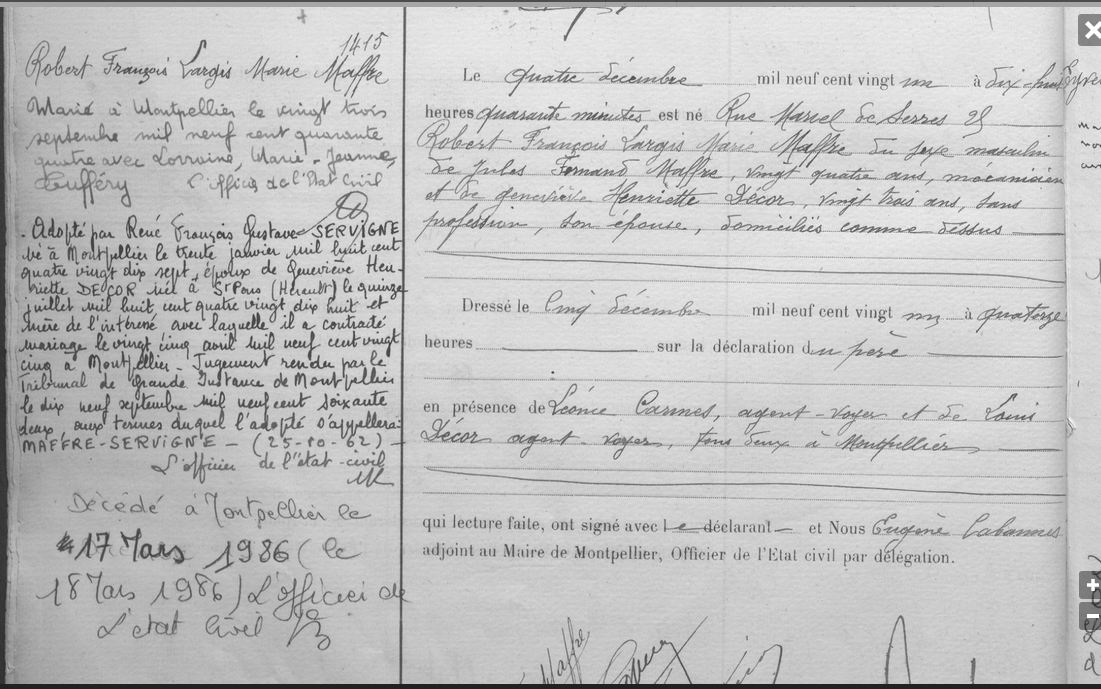 1415
Robert François Largis Marie Maffre
Marié à Montpellier le vingt trois
septembre mil neuf cent quarante
quatre avec Lorraine, Marie-Jeanne,
L'officier de l'Etat Civil
- Adopté par René François Gustave SERVIGNE
né à Montpellier le trente janvier mil huit cent
quatre vingt dix sept, époux de Geneviève Hen-
riette DECOR née à St Pons (Hérault) le quinze
juillet mil huit cent quatre vingt dix huit et
mère de l'intéressé avec laquelle il a contracté
mariage le vingt cinq avril mil neuf cent vingt
cinq à Montpellier - Jugement rendu par le
Tribunal de Grande Instance de Montpellier
le dix neuf septembre mil neuf cent soixante
deux aux termes duquel l'adopté s'appellera
MAFFRE-SERVIGNE - (25-10-62) -
L'officier de l'état-civil
Décédé à Montpellier le
17 Mars 1986 (le
18 Mars 1986) L'officier de
L'état Civil
Le quatre décembre mil neuf cent vingt un à dix-huit
heures quarante minutes est né Rue Marcel de Serres
Robert François Largis Marie Maffre du sexe masculin
de Jules Fernand Maffre, vingt quatre ans, mécanicien
et de Geneviève Henriette Décor, vingt trois ans, sans
profession, son épouse, domiciliés comme dessus
Dressé le cinq décembre mil neuf cent vingt un à quatorze
heures sur la déclaration du père
en présence de Léonce Carmes, agent-voyer et de Louis
Décor agent-voyer, tous deux à Montpellier
qui lecture faite, ont signé avec le déclarant et Nous Eugène Cabannes
adjoint au Maire de Montpellier, Officier de l'Etat civil par délégation.
Maffre